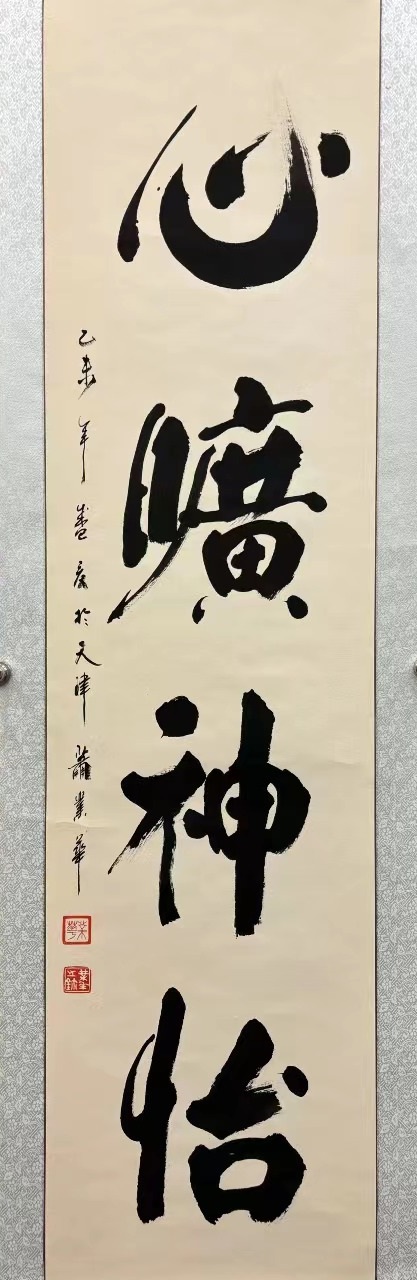 心曠神怡
乙未年春月於天津蕭業華